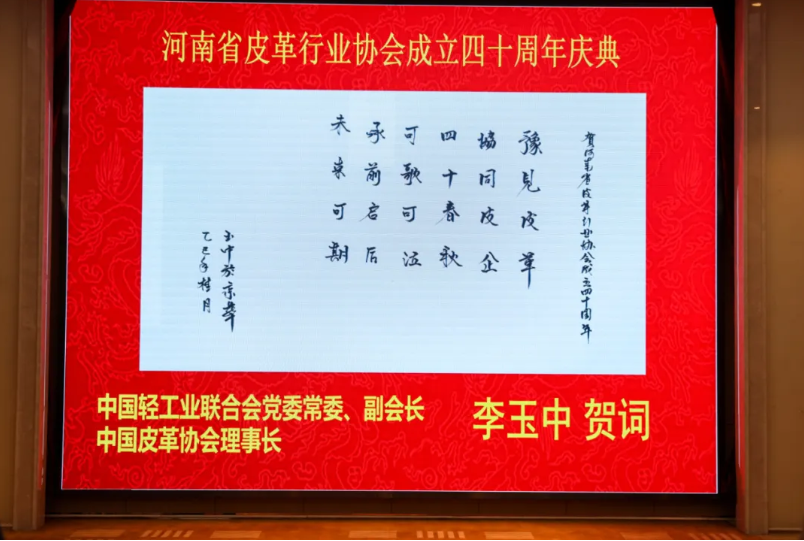 河南省皮革行业协会成立四十周年庆典
贺河南省皮革行业协会成立四十周年
豫见皮革
協同皮企
四十春秋
可歌可泣
承前启后
未来可期
玉中於京華
乙巳年桂月
中国轻工业联合会党委常委、副会长
中国皮革协会理事长
李玉中 贺词